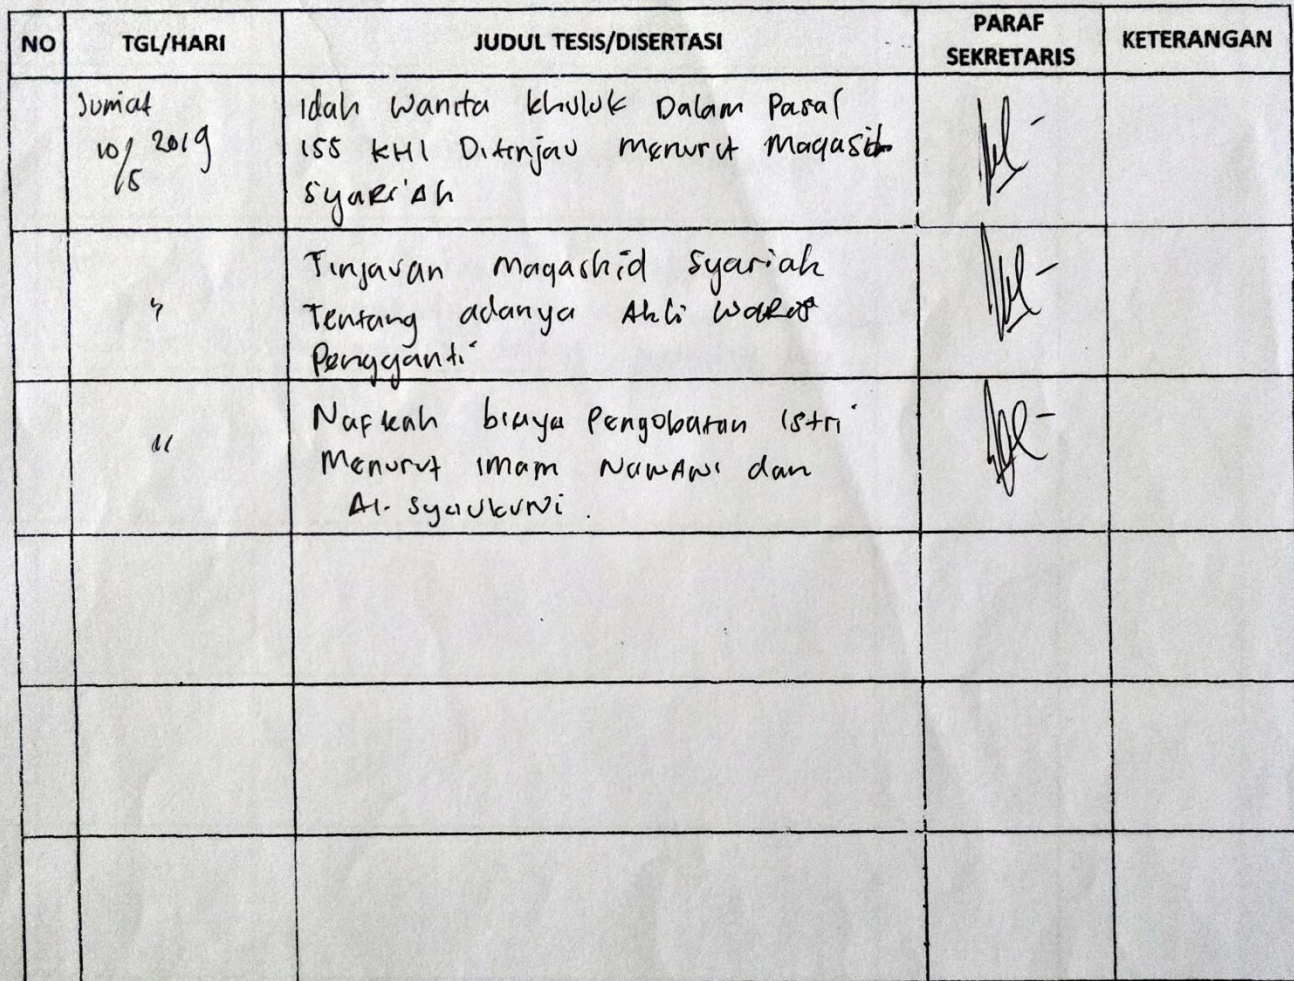 NO TGL/HARI JUDUL TESIS/DISERTASI PARAF SEKRETARIS KETERANGAN
Jumat
10/5 2019
Idah Wanita Khuluk Dalam Pasal
155 KHI Ditinjau Menurut Maqasid
Syari'ah
"
Tinjauan Maqashid Syariah
Tentang adanya Ahli Waris
Pengganti
"
Nafkah biaya Pengobatan Istri
Menurut Imam Nawawi dan
Al-Syaukani.